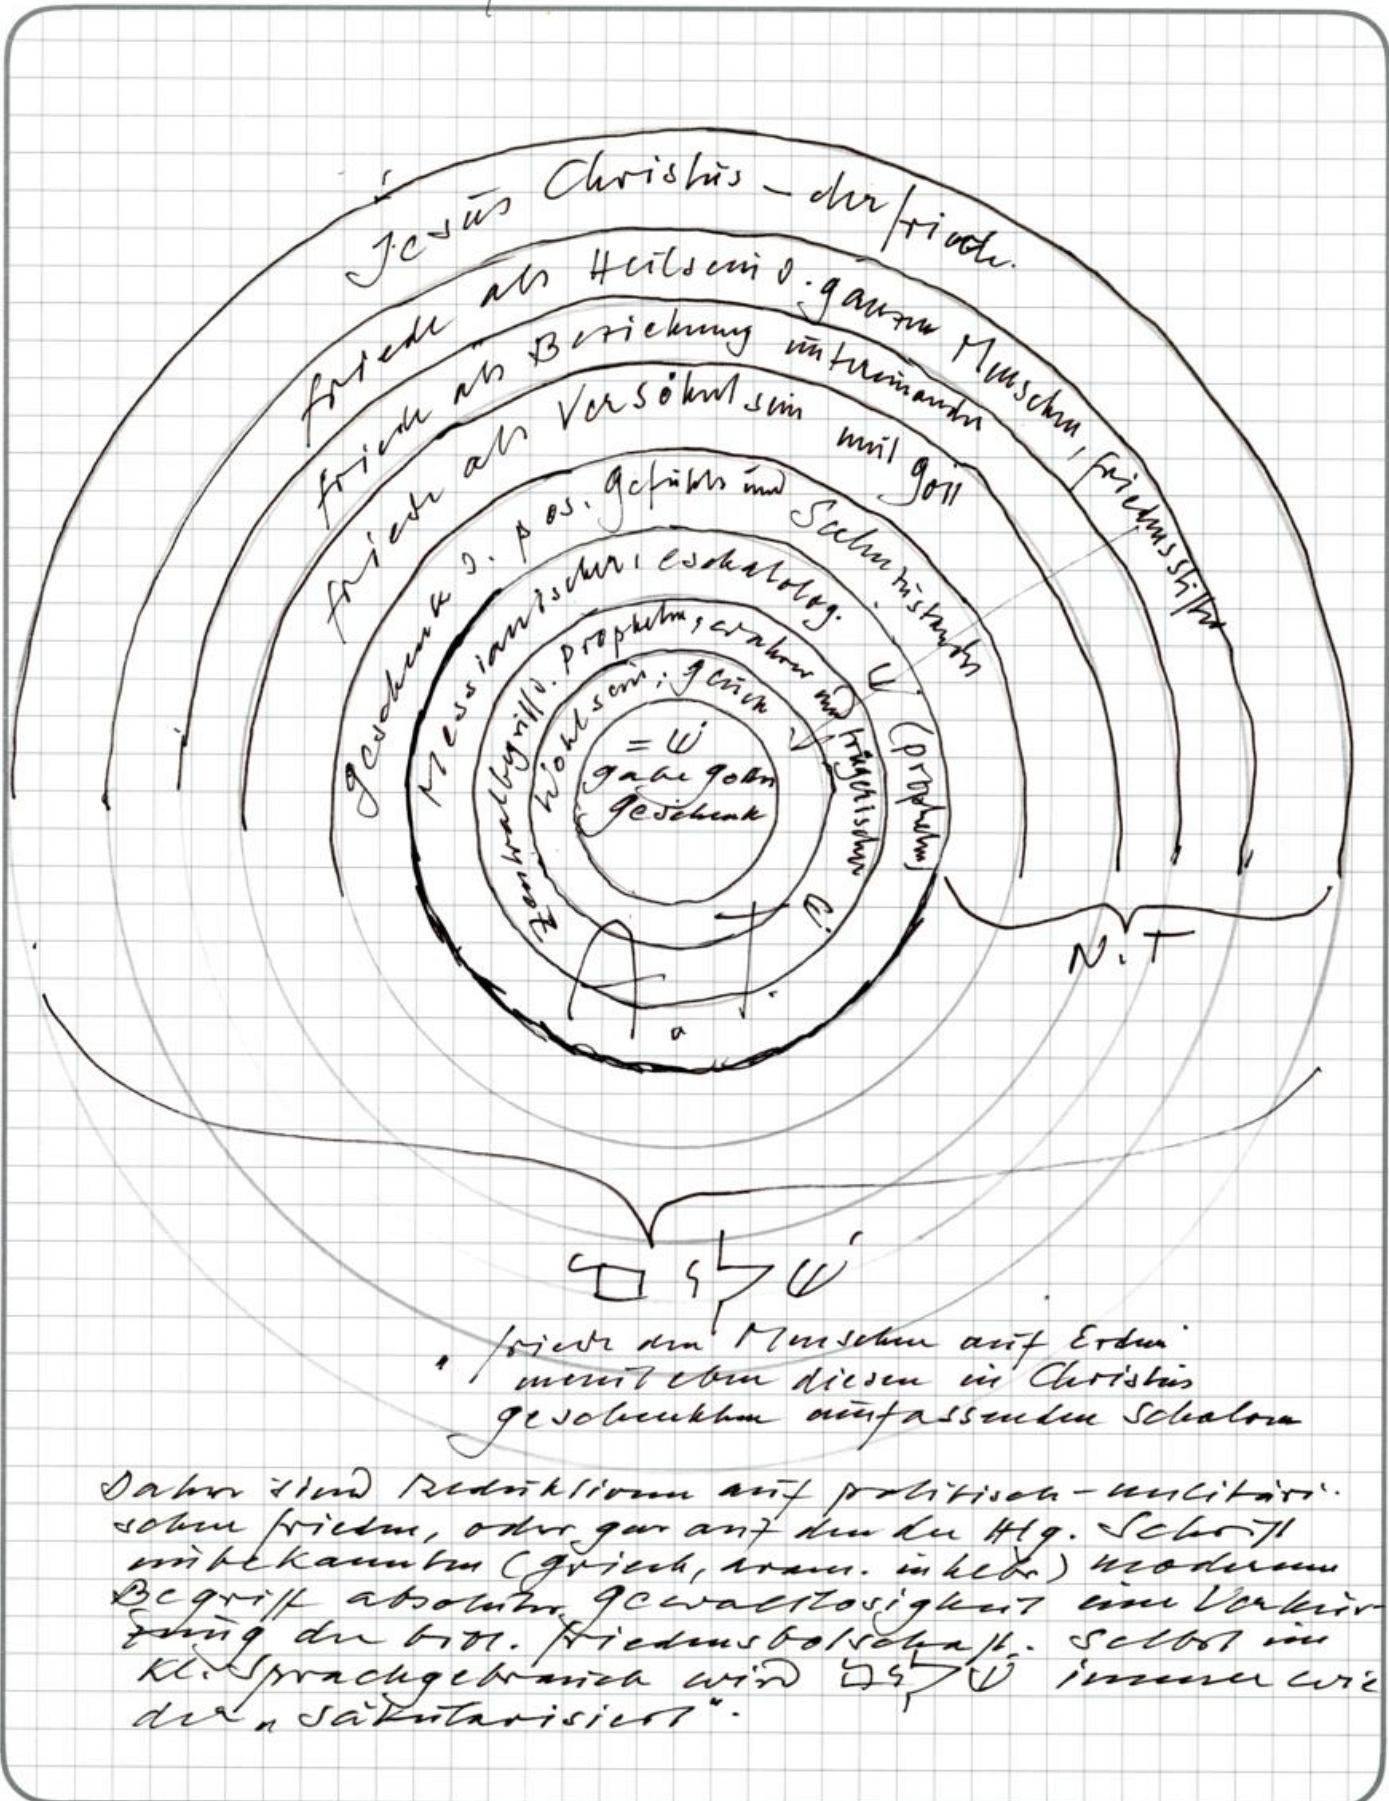 Jesus Christus – der Friede.
Friede als Heilsein d. ganzen Menschen, Friedensstifter
Friede als Beziehung untereinander
Friede als Versöhnt sein mit Gott
Geschenk d. pos. Gefühls und Seelenzustandes
Messianischer, eschatolog. שׁ (Propheten)
Zentralbegriff d. Propheten, wahrer und trügerischer שׁ
Wohlsein, Glück
= שׁ
Gabe Gottes
Geschenk
A. T.
N.T
שׁלום
"Friede den Menschen auf Erden"
meint eben diesen in Christus
geschenkten umfassenden Schalom
Daher sind Reduktionen auf politisch-militäri-
schen Frieden, oder gar auf den der Hlg. Schrift
unbekannten (griech, aram. u hebr.) modernen
Begriff absoluter Gewaltlosigkeit eine Verkür-
zung der bibl. Friedensbotschaft. Selbst im
kl. Sprachgebrauch wird שׁלום immer wie
der „säkularisiert".